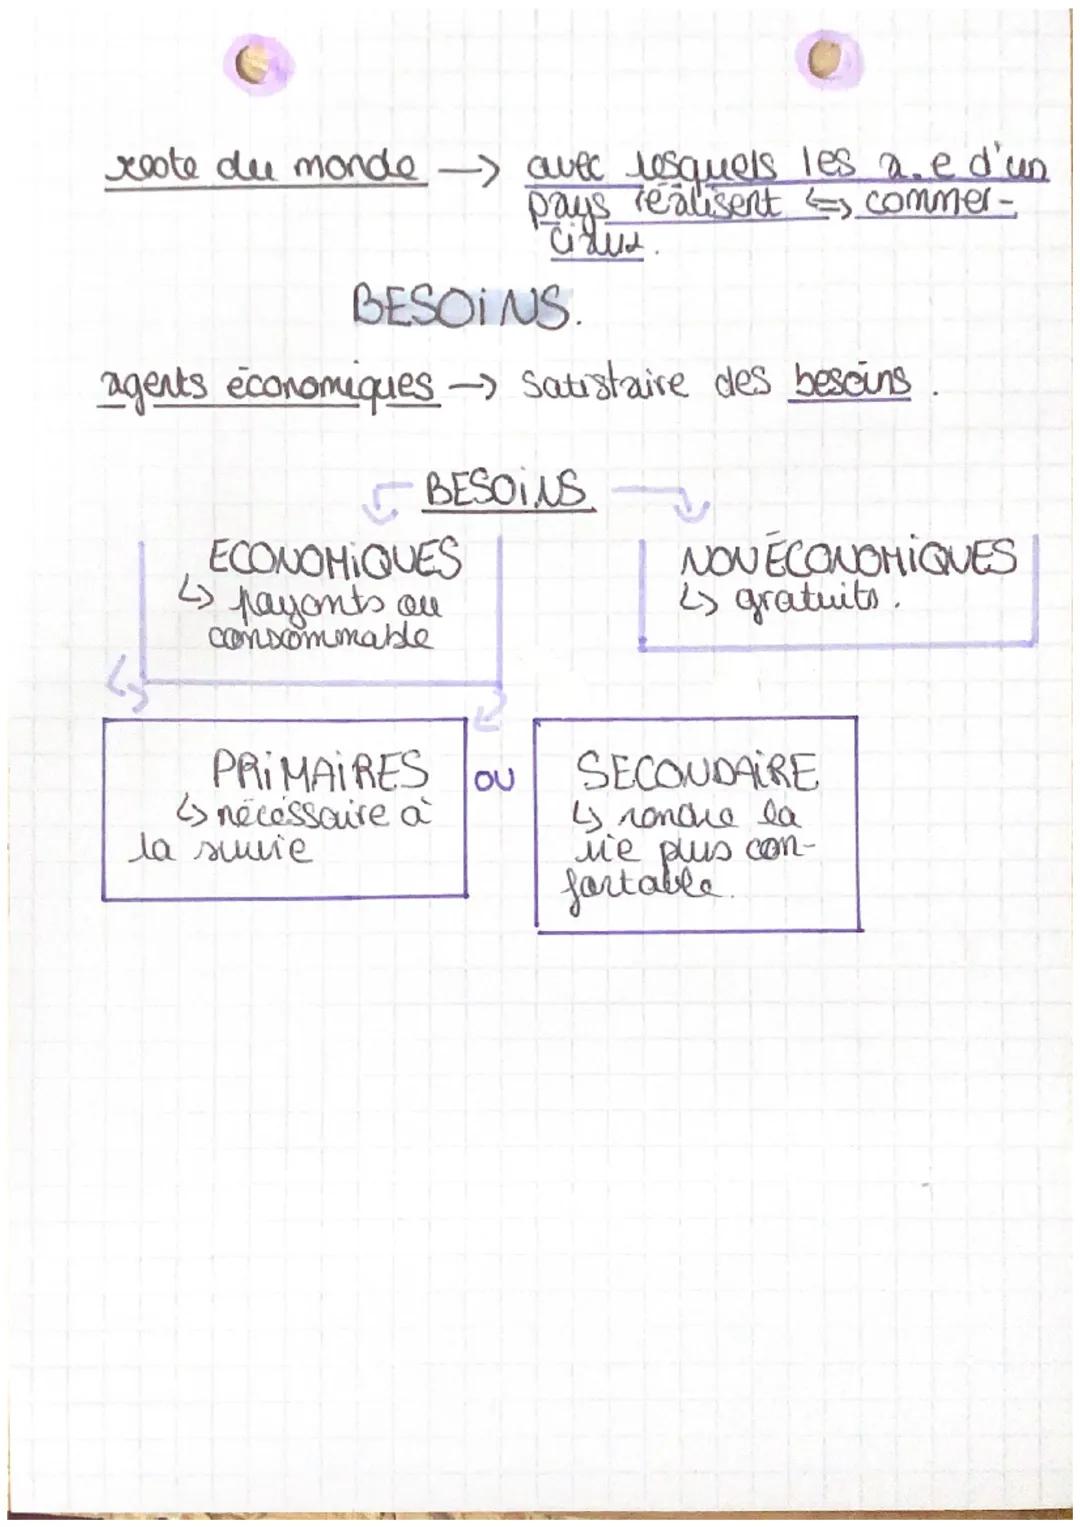 reste du monde → avec lesquels les a.e d'un
pays réalisent ⇆ commer-
ciaux.
BESOINS.
agents économiques → satisfaire des besoins.
BESOINS
ECONOMIQUES
↳ payants ou
consommable
NON ÉCONOMIQUES
↳ gratuits.
PRIMAIRES
↳ nécessaire à
la survie
OU
SECONDAIRE
↳ rendre la
vie plus con-
fortable.